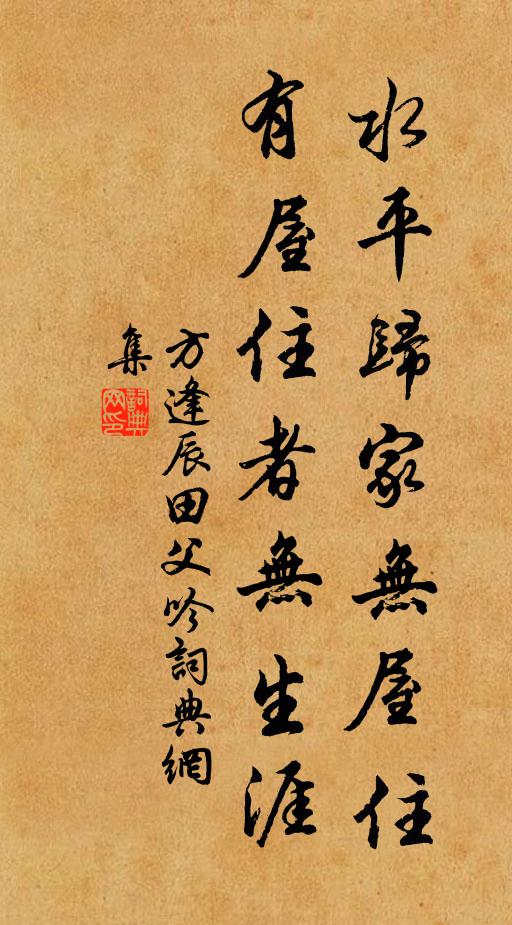 水平歸家無屋住
有屋住者無生涯
方逢辰田父吟詞典網
集
詞典
网印